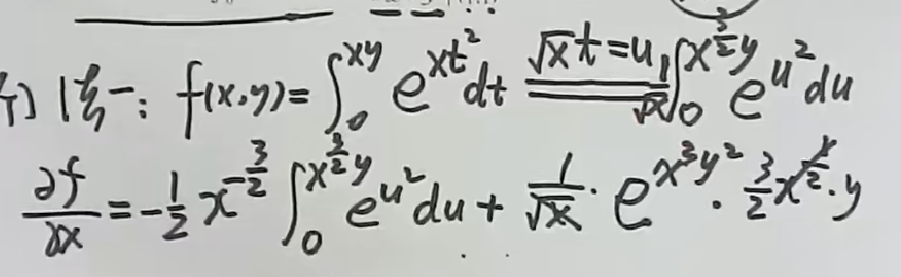 f(x,y)=∫₀^{xy} e^{xt²}dt \xlongequal{√x t=u} 1/√x ∫₀^{x^{3/2}y} e^{u²}du
∂f/∂x=-1/2 x^{-3/2} ∫₀^{x^{3/2}y} e^{u²}du+1/√x·e^{x³y²}·3/2 x^{1/2}·y